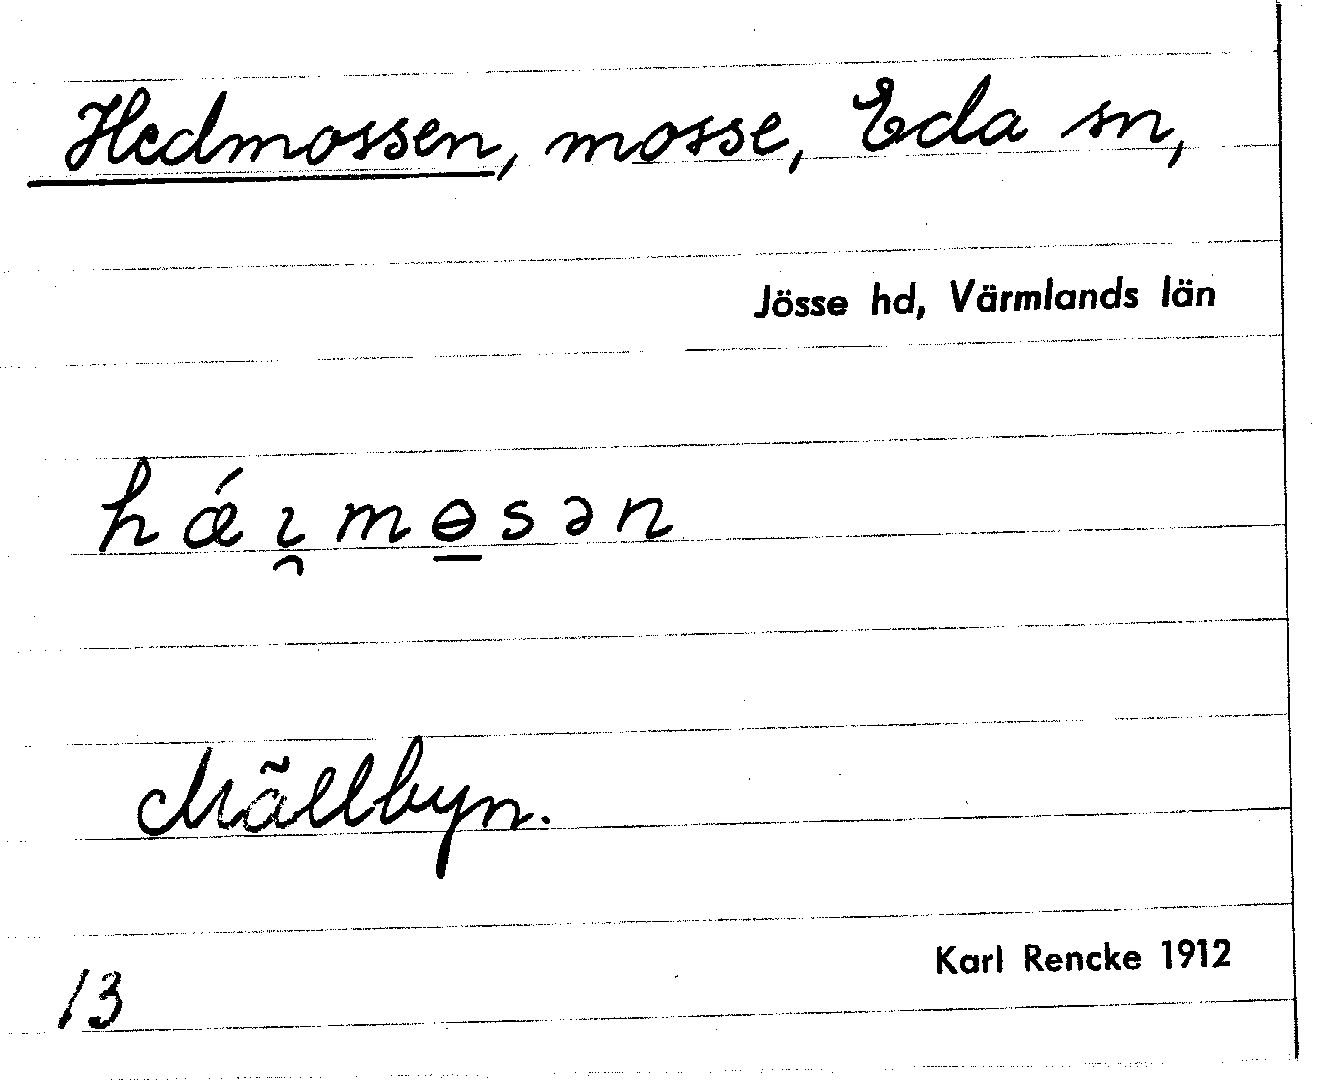 Hedmossen, mosse, Eda sn,
Jösse hd, Värmlands län
hǽɪ̯mɵ̠sən
Mällbyn.
Karl Rencke 1912
13